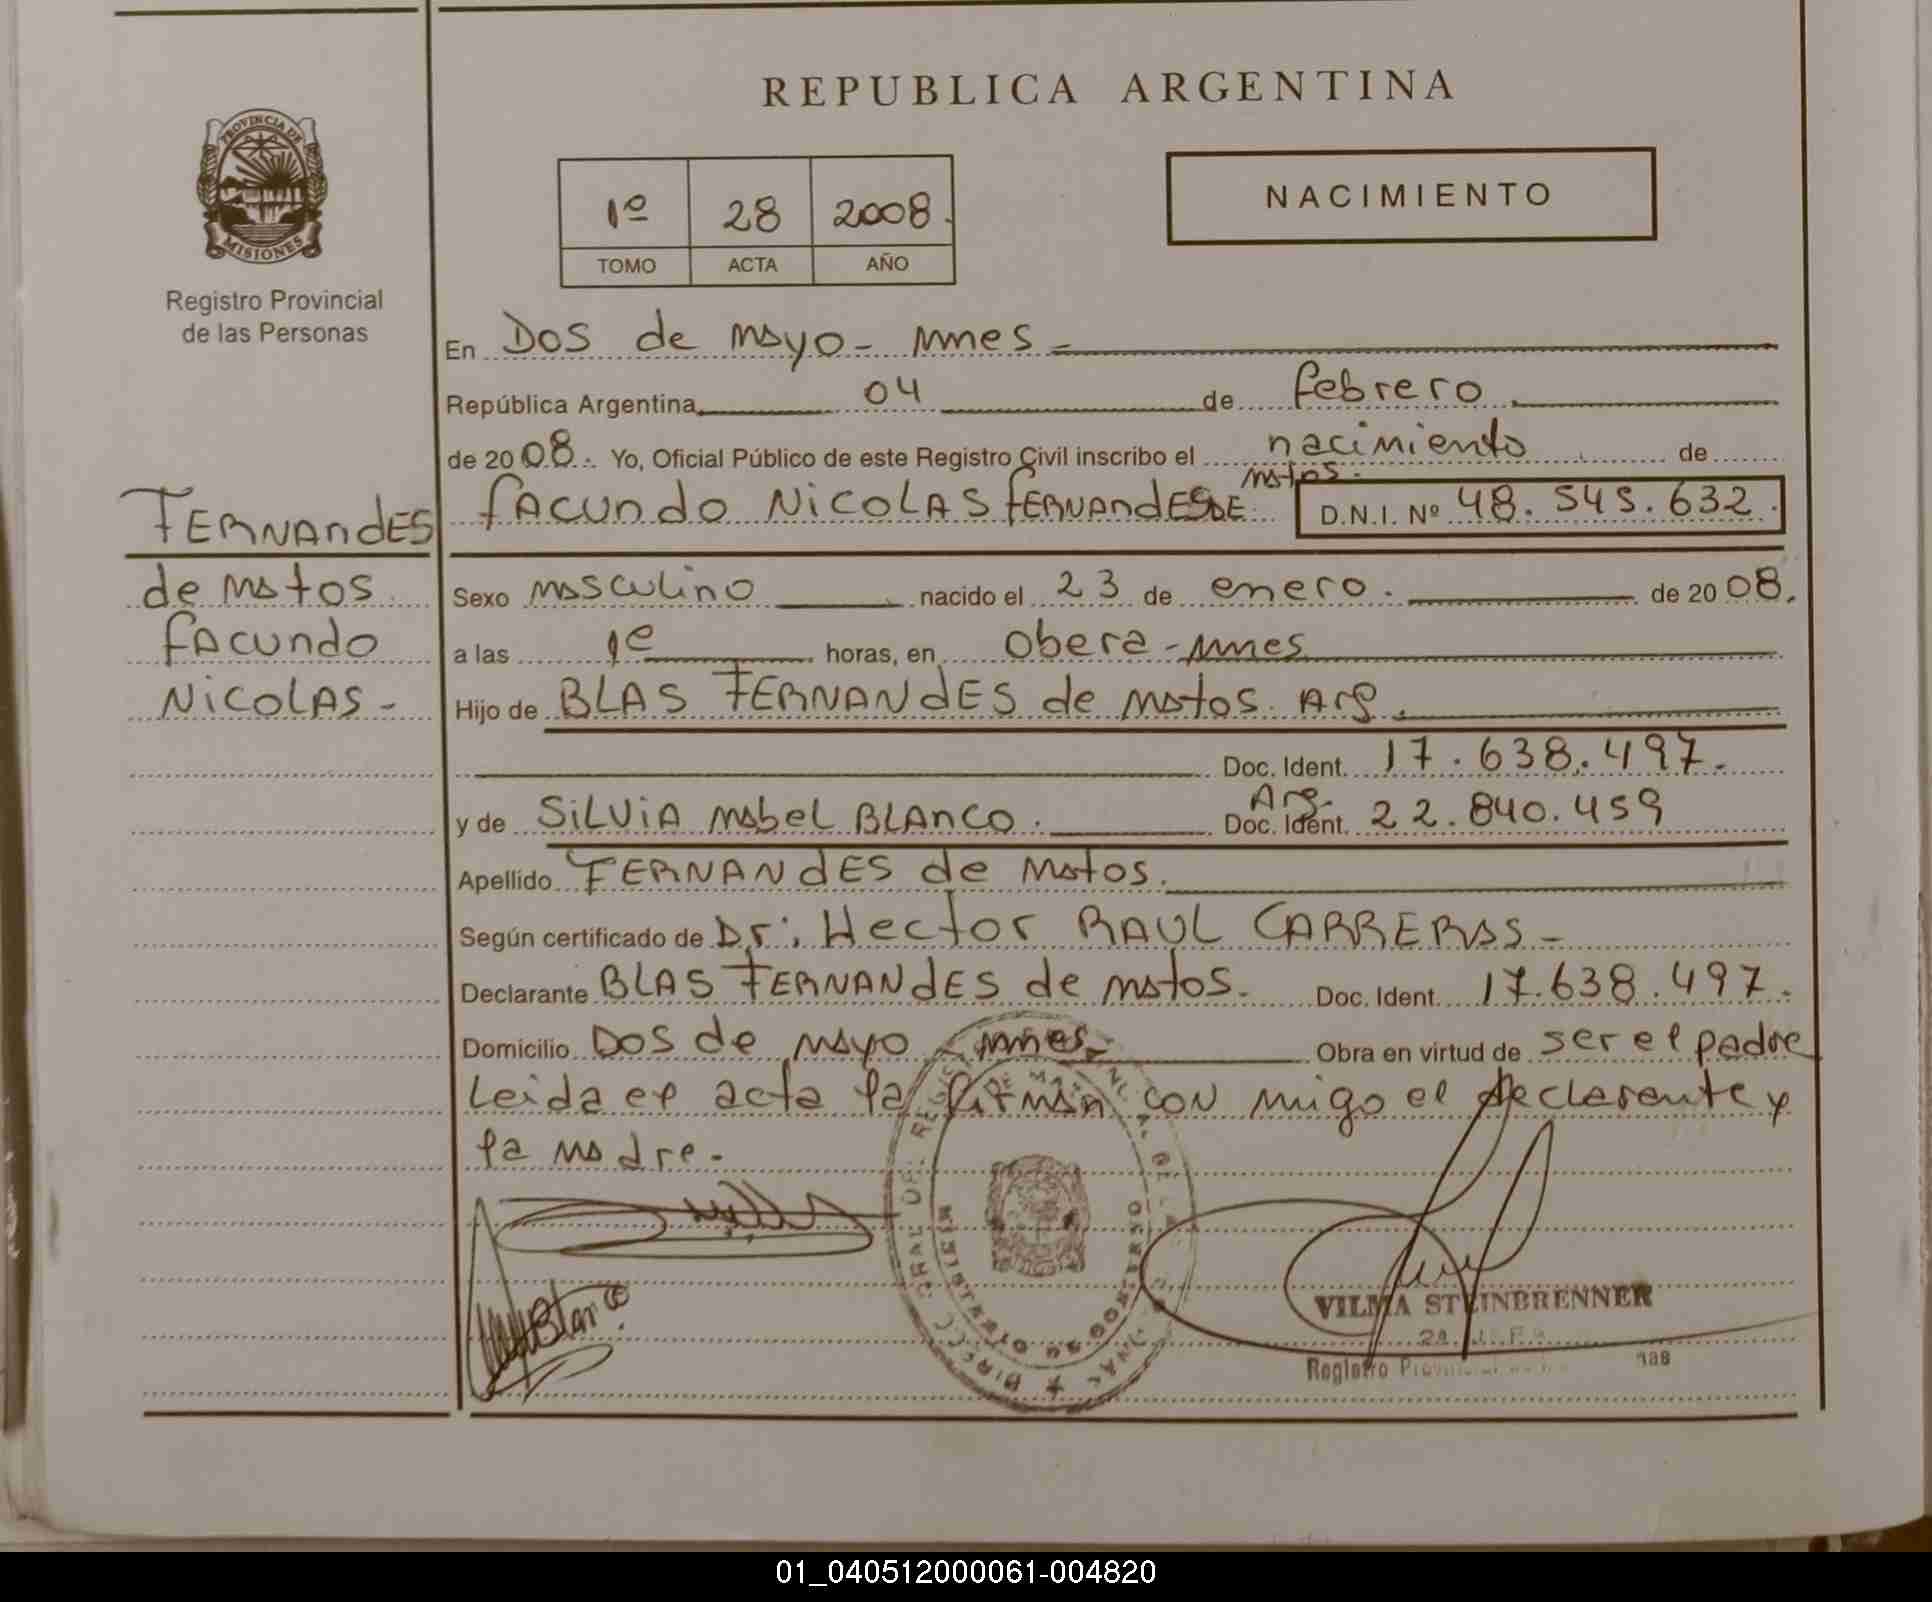 REPUBLICA ARGENTINA
PROVINCIA DE
MISIONES
Registro Provincial
de las Personas
1º 28 2008.
TOMO ACTA AÑO
NACIMIENTO
En Dos de mayo - mnes -
República Argentina, 04 de febrero
de 2008. Yo, Oficial Público de este Registro Civil inscribo el nacimiento de
matos.
FACUNDO NICOLAS FERNANDES DE D.N.I. Nº 48.545.632
Sexo masculino nacido el 23 de enero. de 2008.
a las 1e horas, en Obera - mnes
Hijo de BLAS FERNANDES de matos. Arg.
Doc. Ident. 17.638.497.
Arg.
y de SILVIA mabel BLANCO. Doc. Ident. 22.840.459
Apellido FERNANDES de matos.
Según certificado de Dr: Hector RAUL CARRERAS -
Declarante BLAS FERNANDES de matos. Doc. Ident. 17.638.497.
Domicilio Dos de mayo - mnes - Obra en virtud de ser el padre
Leida el acta la firman con migo el declarante y
la madre.
FERNANDES
de matos
FACUNDO
NICOLAS -
Blanco
MINISTERIO DE GOBIERNO
VILMA STEINBRENNER
Registro
01_040512000061-004820